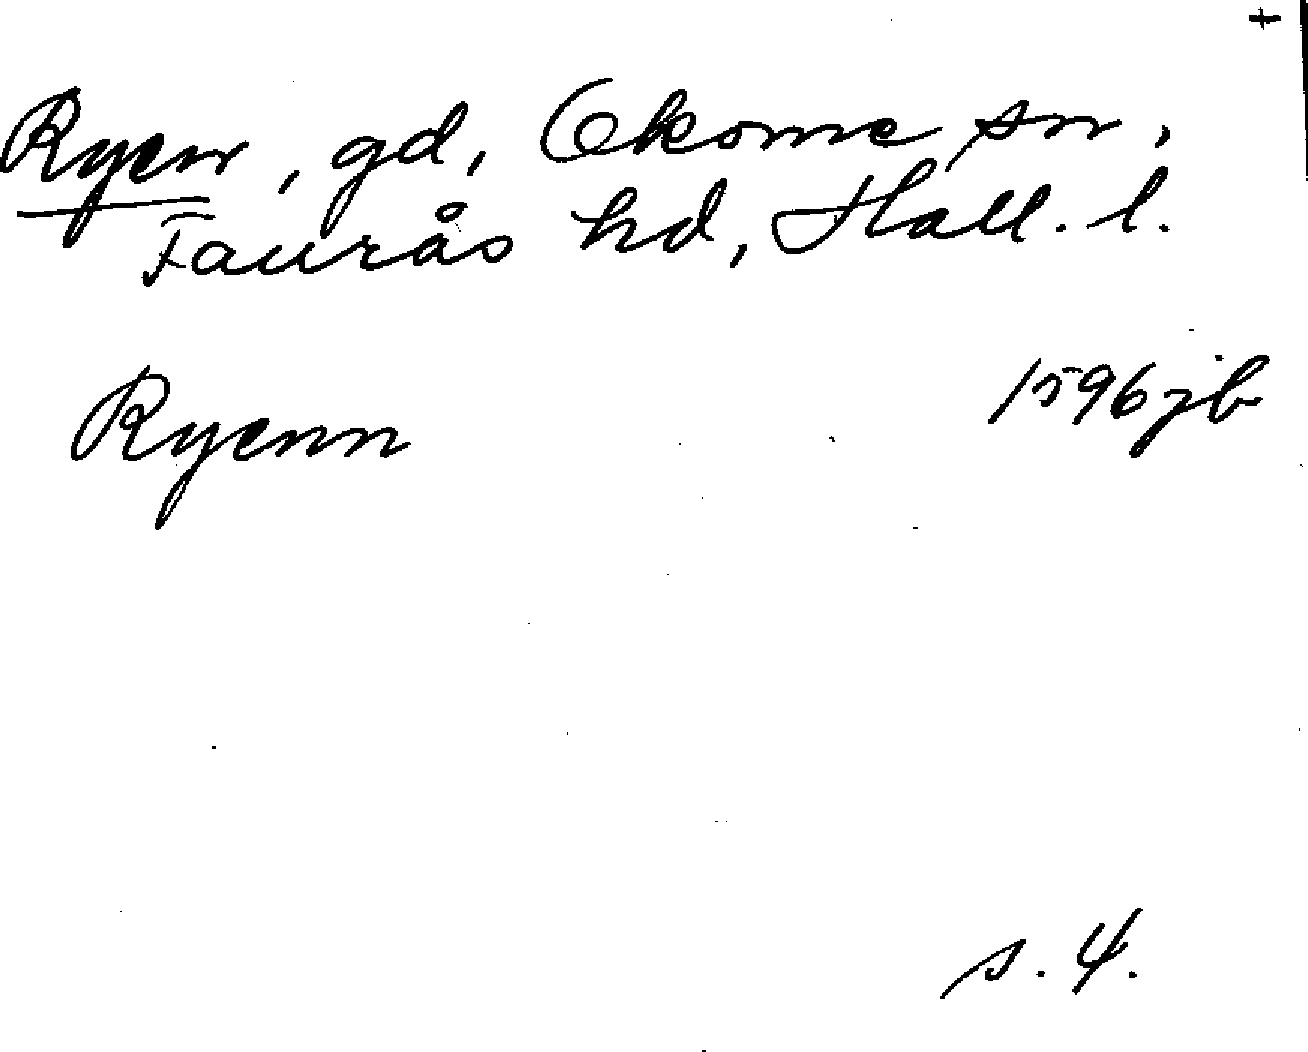 +
Ryen, gd, Okome sn,
Faurås hd, Hall. l.
Ryenn 1596 jb
s. 4.